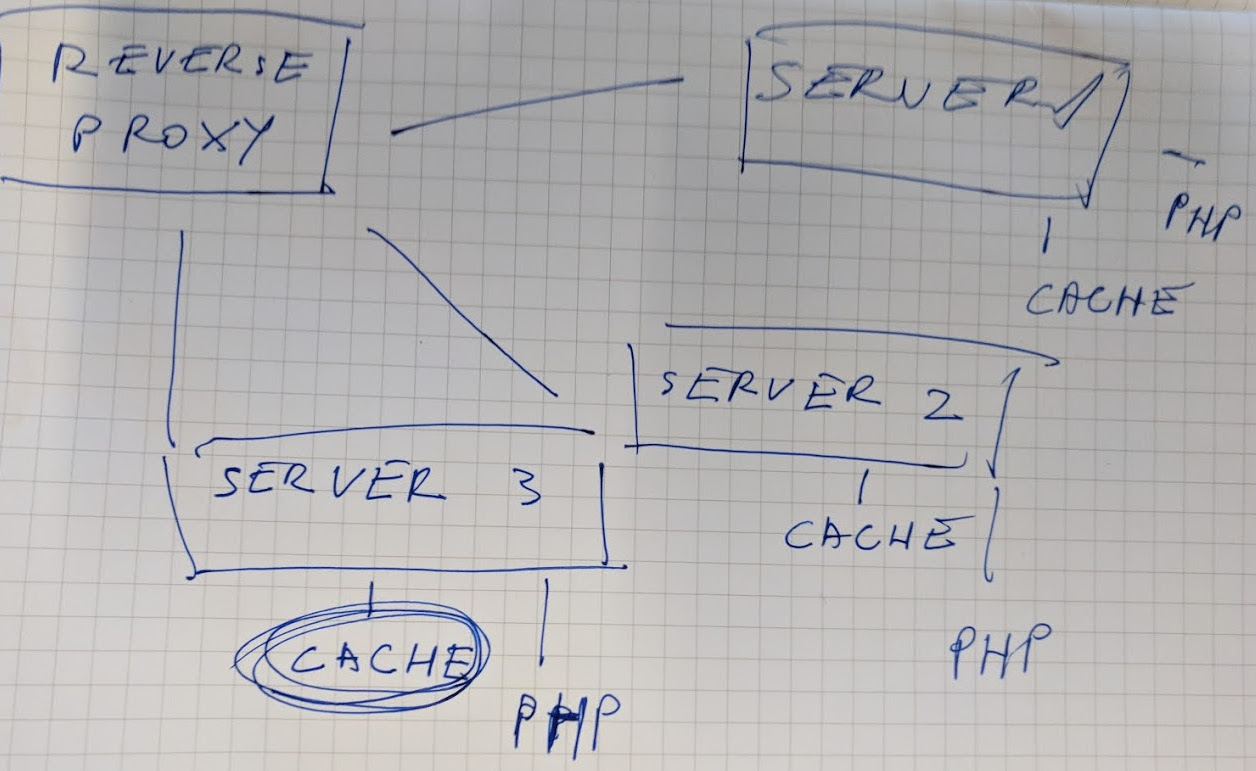 REVERSE
PROXY
SERVER 1
PHP
CACHE
SERVER 2
CACHE
PHP
SERVER 3
CACHE
PHP